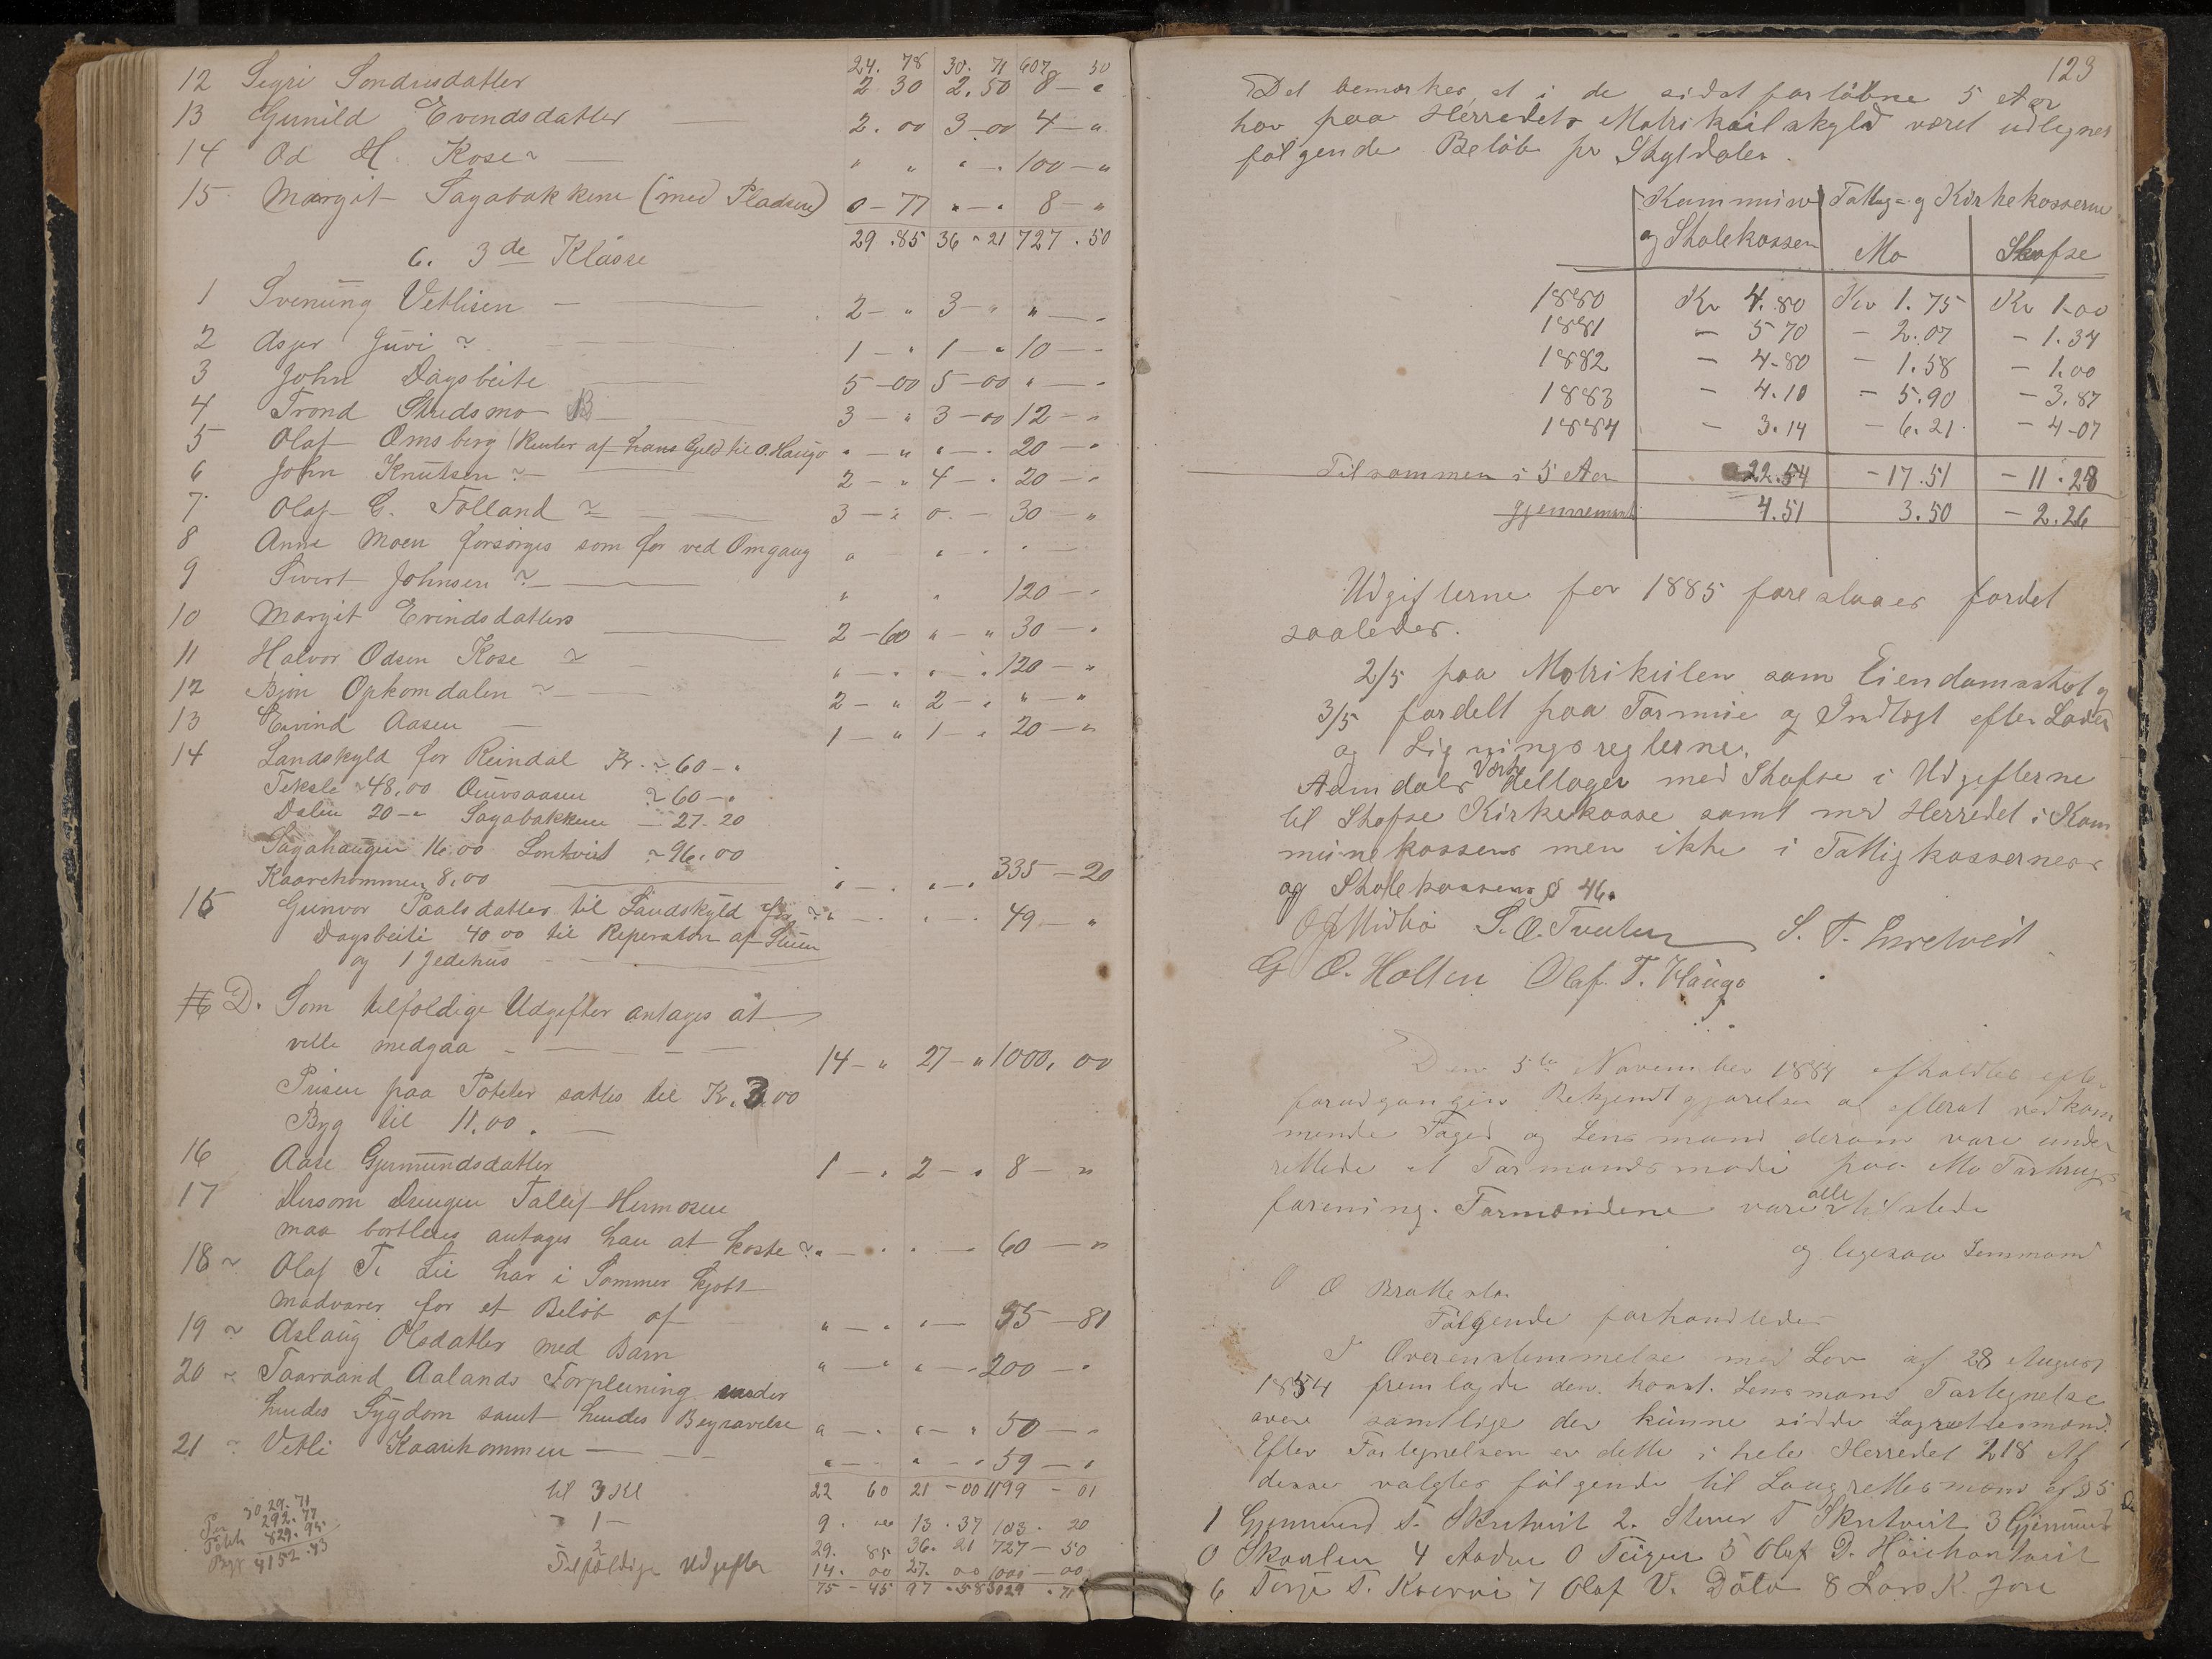 24. 78 30. 71 607 50
12 Sigri Sondresdatter 2 30 2.50 8 – "
13 Gunild Evendsdatter 2.00 3.00 4 – "
14 Od H. Kose ~ " " " – . 100 – "
15 Margit Sagabakkene (med Pladsen) 0 – 77 " – " 8 – "
29.85 36 – 21 727.50
C. 3de Klasse
1 Svenung Vetlisen – 2 – " 3 – " " – "
2 Asjer Juvi ~ 1 – " 1 – " 10 – "
3 John Dagsbeite 5 – 00 5 – 00 " – "
4 Trond Skredsmo 3 – " 3 – 00 12 – "
5 Olaf Omsberg (Renter af hans Gjeld til O. Haugo " – " " – . 20 – "
6 John Knutsen ~ 2 – " 4 – . 20 – "
7 Olaf G. Tolland ~ 3 – " 0 . – 30 – "
8 Anne Moen forsørges som før ved Omgang " – " – . " –
9 Sivert Johnsen ~ " " 120 – "
10 Margit Evindsdatters 2 – 60 " – " 30 – "
11 Halvor Odsen Kose ~ " – " " – . 120 – "
12 Bjøn Opkomdalen ~ 2 – " 2 – " " – "
13 Eivind Aasen – 1 – " 1 – " 20 – "
14 Landskyld for Reindal Kr. ~ 60 – "
Teksle ~ 48,00 ~ 60 – "
Dalen 20 – " Sagabakkene – 27 – 20
Sagahaugen 16.00 Lontvet ~ 96.00
Kaarehommen 8,00 " – . " – . 335 – 20
15 Gunvor Paalsdatter til Landskyld for ~ " – . " – . 49 – "
Dagsbeiti 40 00 til Reperation af Stuen
og 1 Jedehus
16 D. Som tilfældige Udgifter antages at
ville medgaa – 14 – " 27 – " 1000,00
Prisen paa Poteter sattes til Kr. 3.00
Byg til 11.00.
16 Aase Gjermundsdatter 1 – " 2 – " 8 – "
17 Dersom Drengen Tallef Hermosen
maa bortleies antages han at koste ~ " – . " – 60 – "
18 ~ Olaf T. Lie har i Sommer kjøbt
madvarer for et Beløb af " – . " – 55 – 81
19 ~ Aslaug Olsdatter med Barn " – " " – . 200 – "
20 ~ Taaraand Aalands Forpleining under
hendes Sygdom samt hendes Begravelse " – . " – " 50 – "
21 ~ Vetli Kaarehommen – " – . " – . 59 – "
til 3 Kl 22 60 21 – 00 1199 – 01
" 1 – 9. 13.37 103.20
2 29. 85 36. 21 727 – 50
Tilfældige Udgifter 14. 00 27. 00 1000 – 00
75 – 45 97 – 58 3029 . 71
3029.71
292.77
829.95
Byg 4152.43
123
Det bemærkes, at i de sidst forløbne 5 Aar
har paa Herredets Matrikkulskyld været udlignet
følgende Beløb pr Skylddaler.
Kommune og Skolekassen Fattig- og Kirkekasserne
Mo Skafse
1880 Kr 4.80 Kr 1.75 Kr 1.00
1881 – 5 70 – 2.07 – 1.34
1882 – 4.80 – 1.58 – 1.00
1883 – 4.10 – 5.90 – 3.87
1884 – 3.14 – 6.21 – 4 – 07
Tilsammen i 5 Aar 22.54 – 17.51 – 11.28
gjennemsnit 4.51 3.50 – 2.26
Udgifterne for 1885 foreslaaes fordelt
saaledes.
2/5 paa Matrikulen som Eiendomsskat og
3/5 fordelt paa Formue og Indtægt efter Loven
og Ligningsreglerne.
Aamdals Værk deltager med Skafse i Udgifterne
til Skafse Kirkekasse samt med Herredet i Kom
munekassens men ikke i Fattigkassernes
og Skolekassens § 46.
O J Midbø S. O. Tveiten S. T. Smetveit
G O. Holten Olaf T. Haugo
Den 5te November 1884 afholdtes efter
forudgangen Bekjendtgjørelse og efterat vedkom
mende Foged og Lensmand derom vare under
rettede et Formandsmøde paa Mo Forbrugs
forening. Formændene vare alle tilstede
og ligesaa Lensmand
O O Brattestø
Følgende forhandledes
I Overensstemmelse med Lov af 28 August
1854 fremlagde den konst. Lensmand Fortegnelse
over samtlige der kunne sidde Lagrettesmænd.
Efter Fortegnelsen er dette i hele Herredet 218 Af
disse valgtes følgende til Laugrettesmænd
1 Gjermund T. Skutveit 2. Stener T Skutveit 3 Gjermund
O Skaalen 4 Aadne O Teigen 5 Olaf D.
6 Terje T. 7 Olaf V. Dølo 8 Lars K. Jore